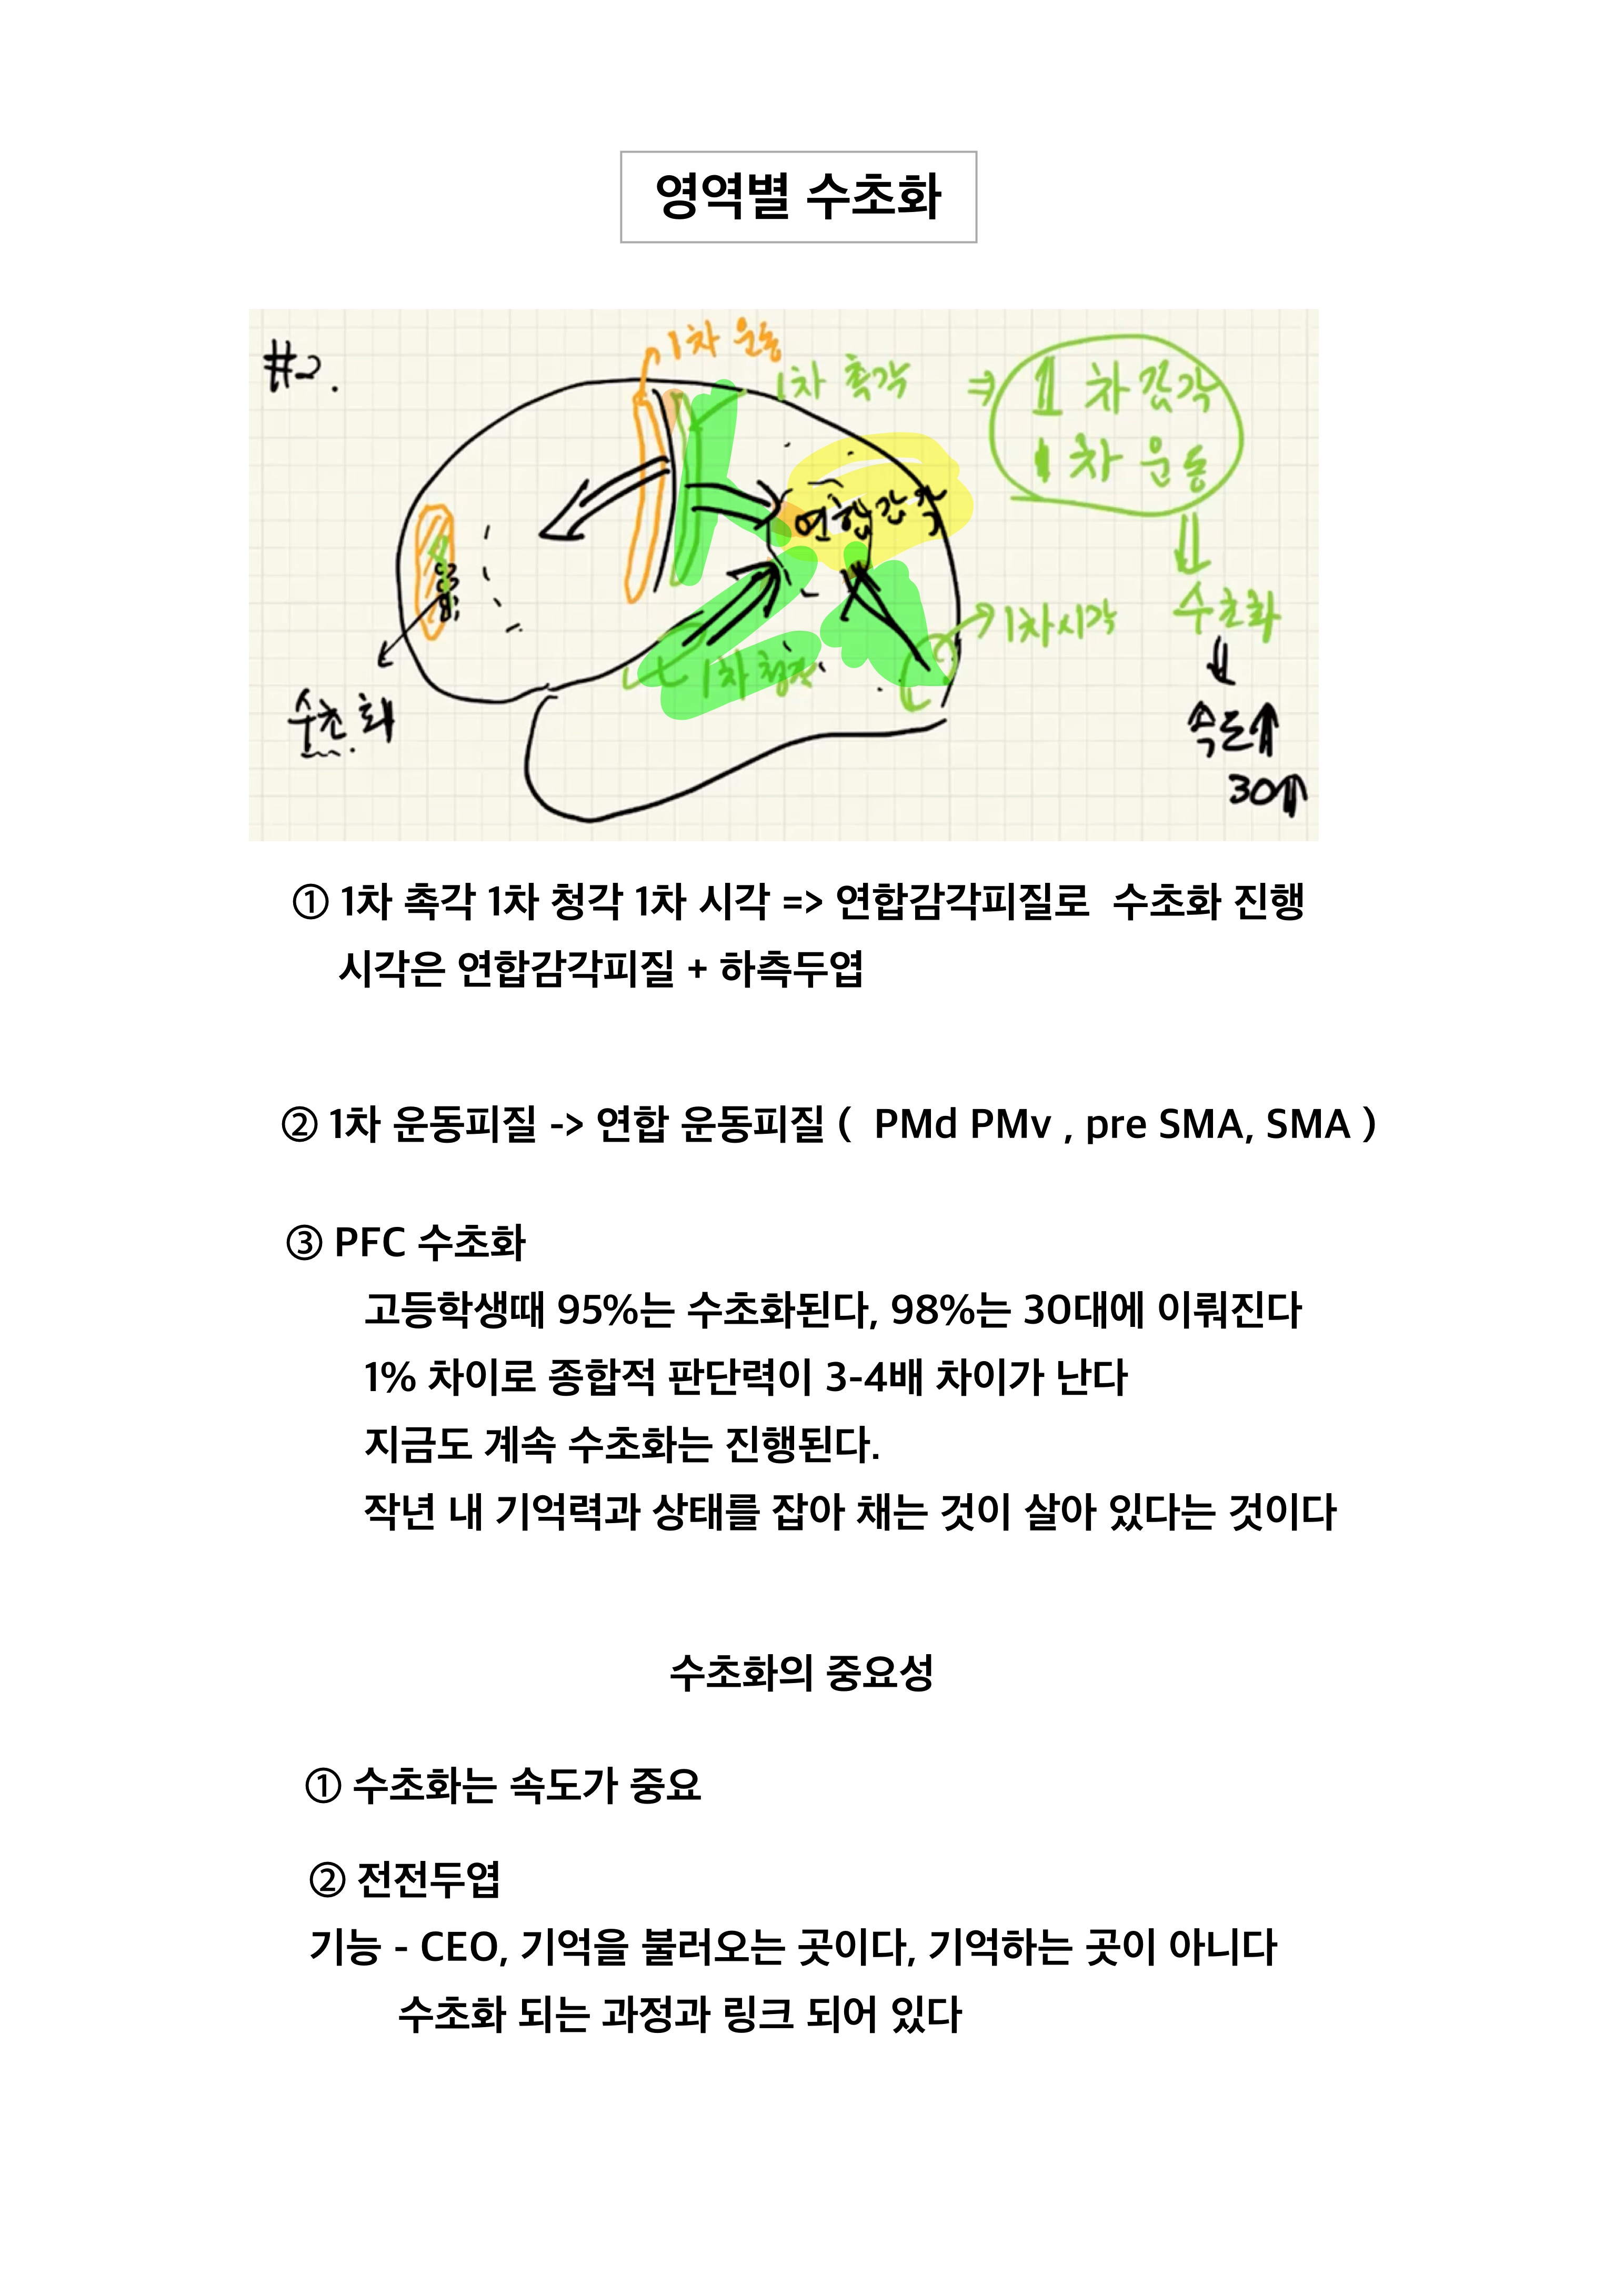 영역별 수초화
#2.
1차 운동
1차 촉각 ⇒ 1차 감각
1차 운동
연합감각
1차시각
수초화
1차 청각
수초화
속도↑
30↑
① 1차 촉각 1차 청각 1차 시각 => 연합감각피질로 수초화 진행
시각은 연합감각피질 + 하측두엽
② 1차 운동피질 -> 연합 운동피질 ( PMd PMv , pre SMA, SMA )
③ PFC 수초화
고등학생때 95%는 수초화된다, 98%는 30대에 이뤄진다
1% 차이로 종합적 판단력이 3-4배 차이가 난다
지금도 계속 수초화는 진행된다.
작년 내 기억력과 상태를 잡아 채는 것이 살아 있다는 것이다
수초화의 중요성
① 수초화는 속도가 중요
② 전전두엽
기능 - CEO, 기억을 불러오는 곳이다, 기억하는 곳이 아니다
수초화 되는 과정과 링크 되어 있다